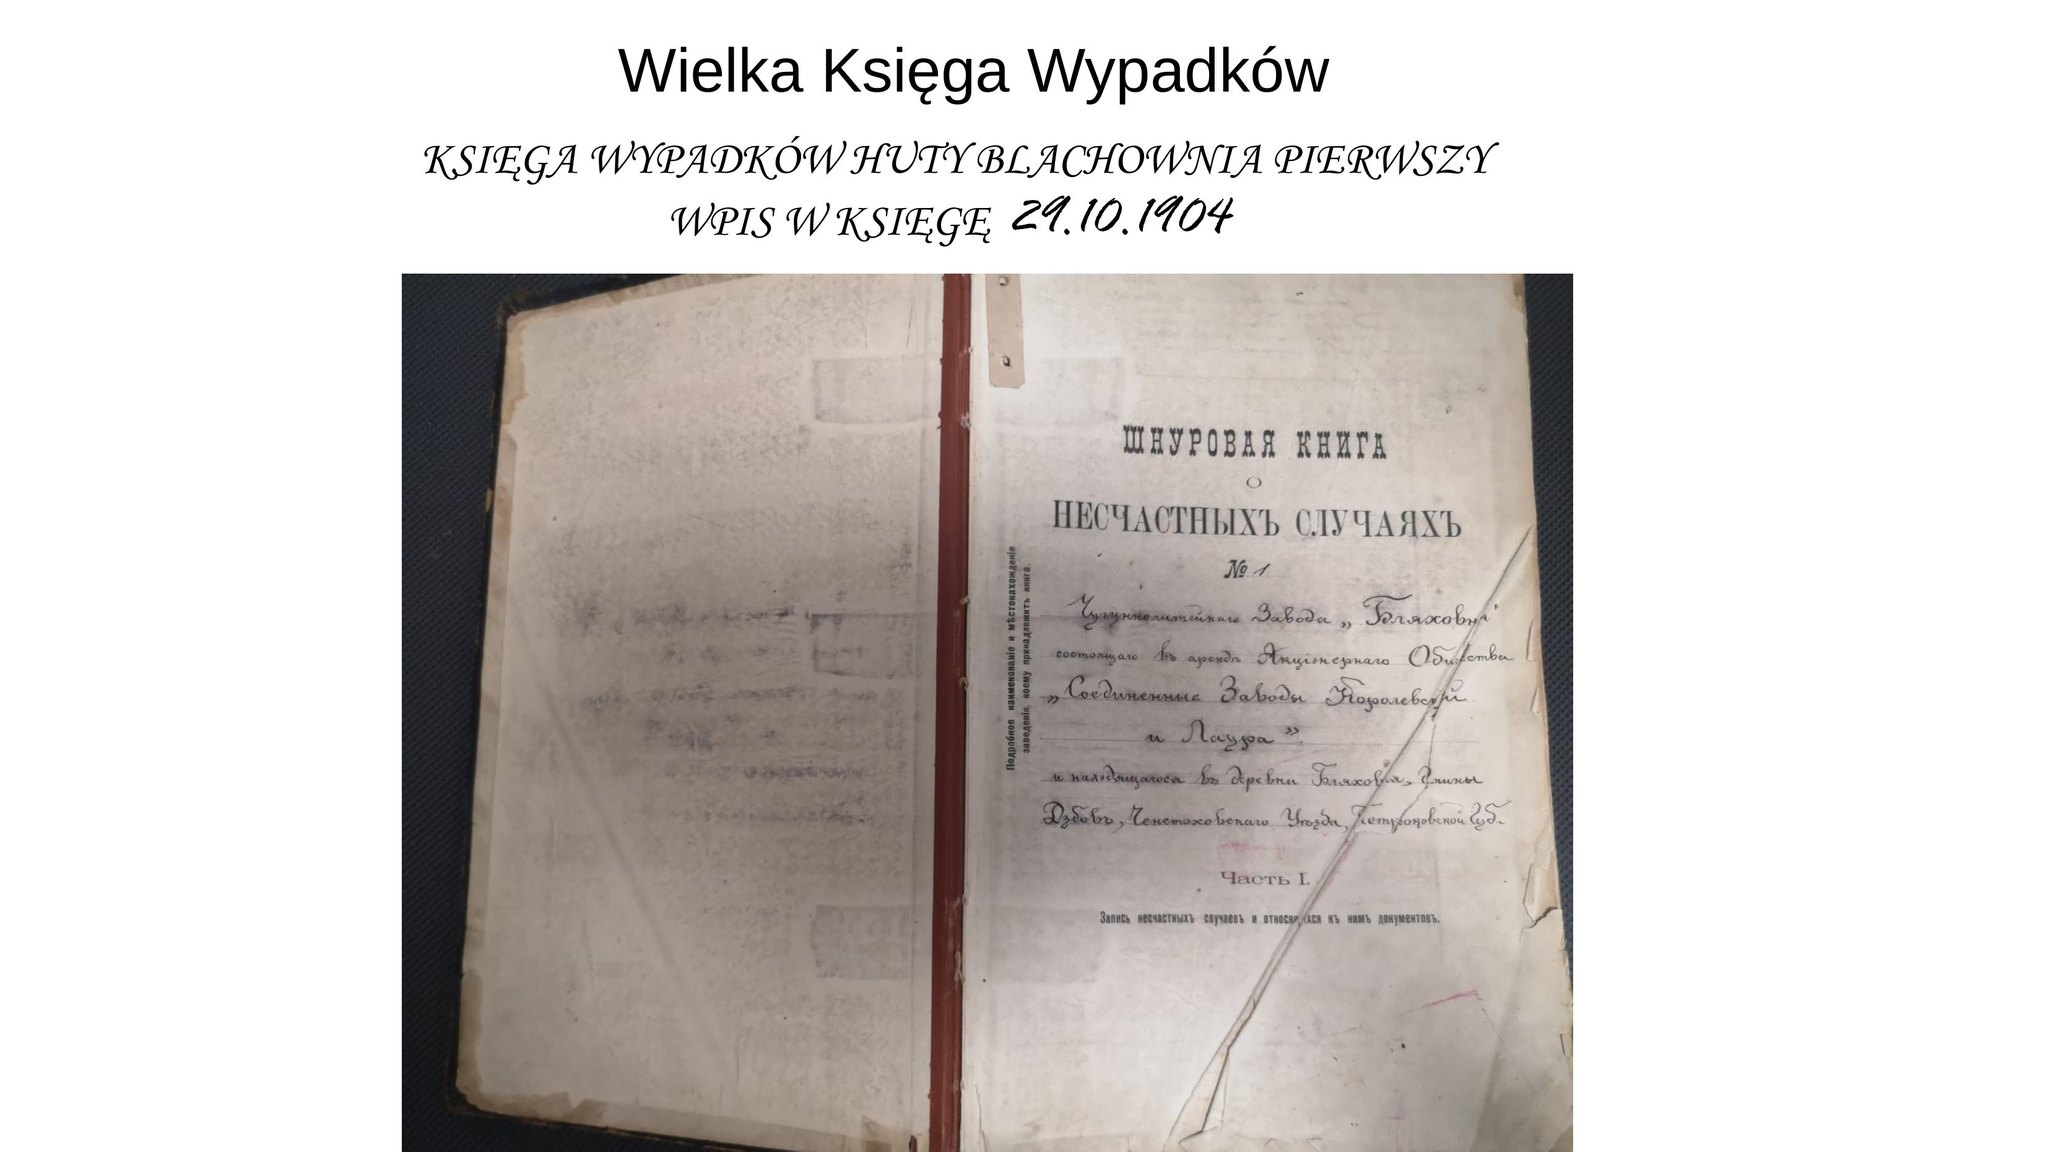 Wielka Księga Wypadków
KSIĘGA WYPADKÓW HUTY BLACHOWNIA PIERWSZY
WPIS W KSIĘGĘ 29.10.1904
ШНУРОВАЯ КНИГА
О
НЕСЧАСТНЫХЪ СЛУЧАЯХЪ
№ 1
Подробное наименованіе и мѣстонахожденіе
заведенія, коему принадлежитъ книга.
Чугуннолитейнаго Завода „Бляховня"
состоящаго въ арендѣ Акціонернаго Общества
„Соединенные Заводы Королевскій
и Лаура".
и находящагося въ деревни Бляховня, Гмины
Дзбовъ, Ченстоховскаго Уѣзда, Петроковской Губ.
Часть I.
Запись несчастныхъ случаевъ и относящихся къ нимъ документовъ.